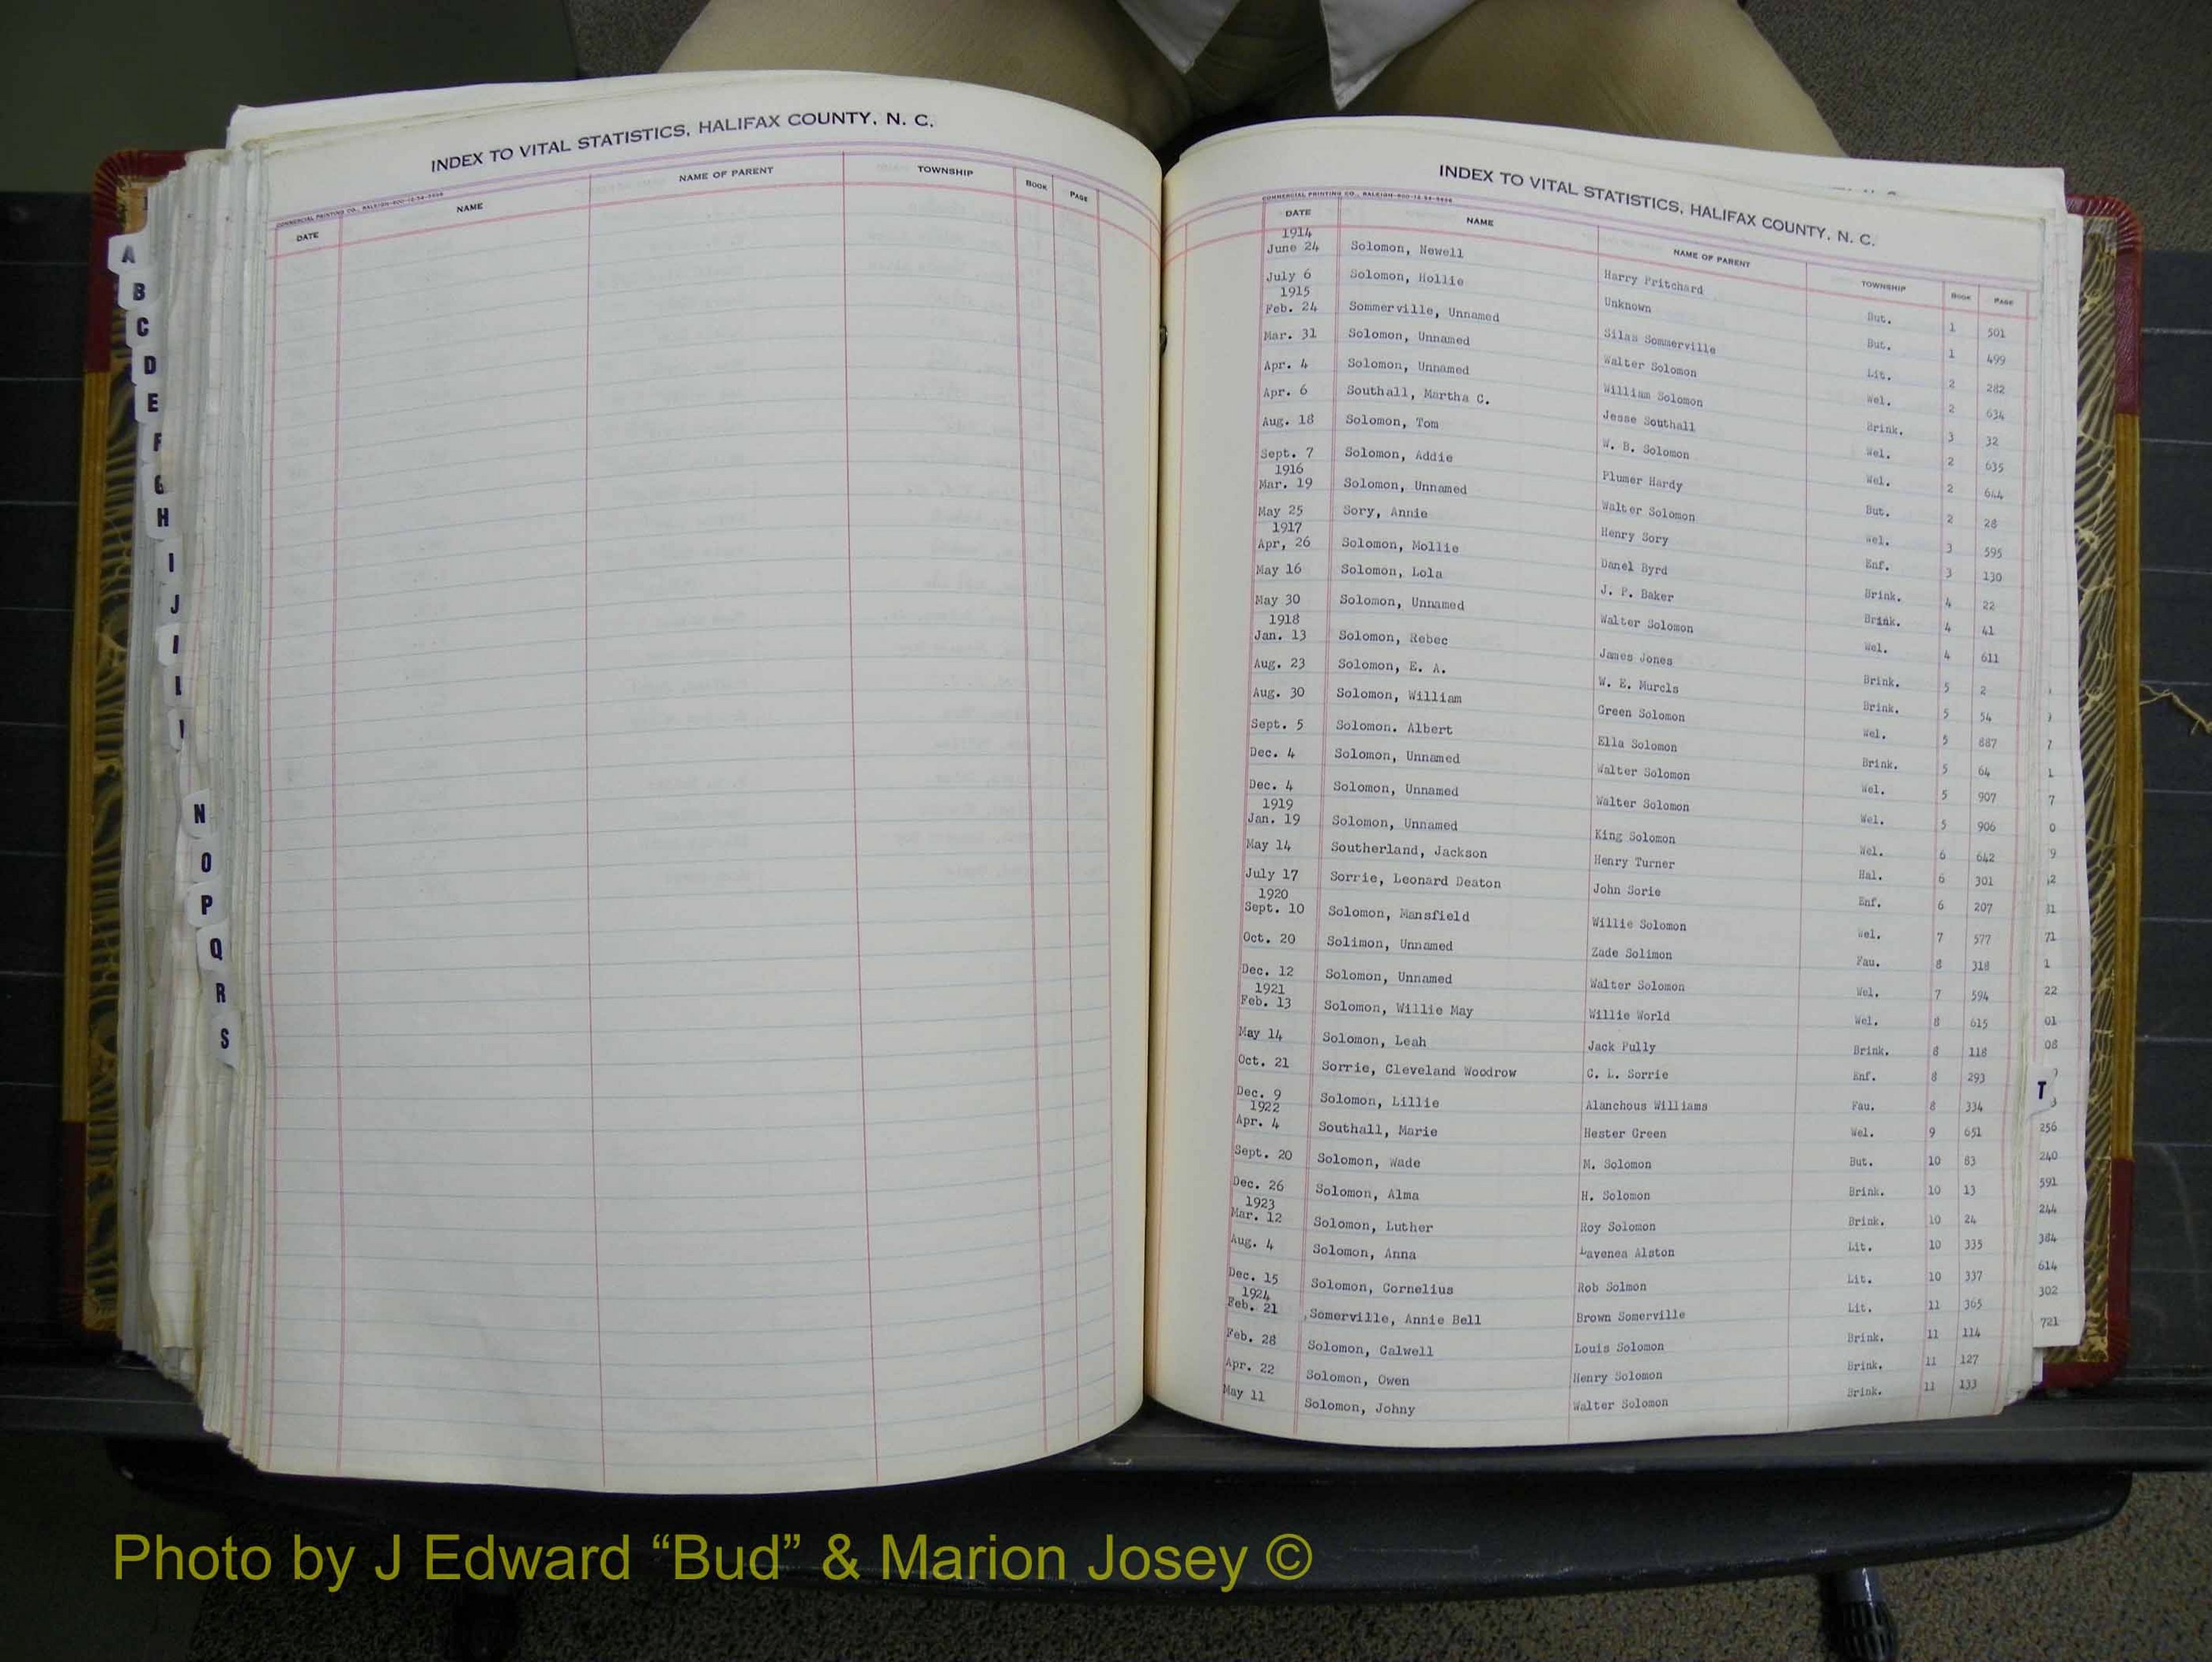 INDEX TO VITAL STATISTICS, HALIFAX COUNTY, N. C.
COMMERCIAL PRINTING CO., RALEIGH
DATE NAME NAME OF PARENT TOWNSHIP BOOK PAGE
A
B
C
D
E
F
G
H
I
J
L
N
O
P
Q
R
S
INDEX TO VITAL STATISTICS, HALIFAX COUNTY, N. C.
COMMERCIAL PRINTING CO., RALEIGH
DATE NAME NAME OF PARENT TOWNSHIP BOOK PAGE
1914
June 24 Solomon, Newell Harry Pritchard But. 1 501
July 6 Solomon, Hollie Unknown But. 1 499
1915
Feb. 24 Sommerville, Unnamed Silas Sommerville Lit. 2 282
Mar. 31 Solomon, Unnamed Walter Solomon Wel. 2 634
Apr. 4 Solomon, Unnamed William Solomon Brink. 3 32
Apr. 6 Southall, Martha C. Jesse Southall Wel. 2 635
Aug. 18 Solomon, Tom W. B. Solomon Wel. 2 644
Sept. 7 Solomon, Addie Plumer Hardy But. 2 28
1916
Mar. 19 Solomon, Unnamed Walter Solomon Wel. 3 595
May 25 Sory, Annie Henry Sory Enf. 3 130
1917
Apr, 26 Solomon, Mollie Danel Byrd Brink. 4 22
May 16 Solomon, Lola J. P. Baker Brink. 4 41
May 30 Solomon, Unnamed Walter Solomon Wel. 4 611
1918
Jan. 13 Solomon, Rebec James Jones Brink. 5 2
Aug. 23 Solomon, E. A. W. E. Murcls Brink. 5 54
Aug. 30 Solomon, William Green Solomon Wel. 5 887
Sept. 5 Solomon. Albert Ella Solomon Brink. 5 64
Dec. 4 Solomon, Unnamed Walter Solomon Wel. 5 907
Dec. 4 Solomon, Unnamed Walter Solomon Wel. 5 906
1919
Jan. 19 Solomon, Unnamed King Solomon Wel. 6 642
May 14 Southerland, Jackson Henry Turner Hal. 6 301
July 17 Sorrie, Leonard Deaton John Sorie Enf. 6 207
1920
Sept. 10 Solomon, Mansfield Willie Solomon Wel. 7 577
Oct. 20 Solimon, Unnamed Zade Solimon Fau. 8 318
Dec. 12 Solomon, Unnamed Walter Solomon Wel. 7 594
1921
Feb. 13 Solomon, Willie May Willie World Wel. 8 615
May 14 Solomon, Leah Jack Pully Brink. 8 118
Oct. 21 Sorrie, Cleveland Woodrow C. L. Sorrie Enf. 8 293
Dec. 9 Solomon, Lillie Alanchous Williams Fau. 8 334
1922
Apr. 4 Southall, Marie Hester Green Wel. 9 651
Sept. 20 Solomon, Wade M. Solomon But. 10 83
Dec. 26 Solomon, Alma H. Solomon Brink. 10 13
1923
Mar. 12 Solomon, Luther Roy Solomon Brink. 10 24
Aug. 4 Solomon, Anna Lavenea Alston Lit. 10 335
Dec. 15 Solomon, Cornelius Rob Solmon Lit. 10 337
1924
Feb. 21 Somerville, Annie Bell Brown Somerville Lit. 11 365
Feb. 28 Solomon, Calwell Louis Solomon Brink. 11 114
Apr. 22 Solomon, Owen Henry Solomon Brink. 11 127
May 11 Solomon, Johny Walter Solomon Brink. 11 133
7
1
7
0
9
12
31
71
1
22
01
08
T
256
240
591
244
384
614
302
721
Photo by J Edward “Bud” & Marion Josey ©